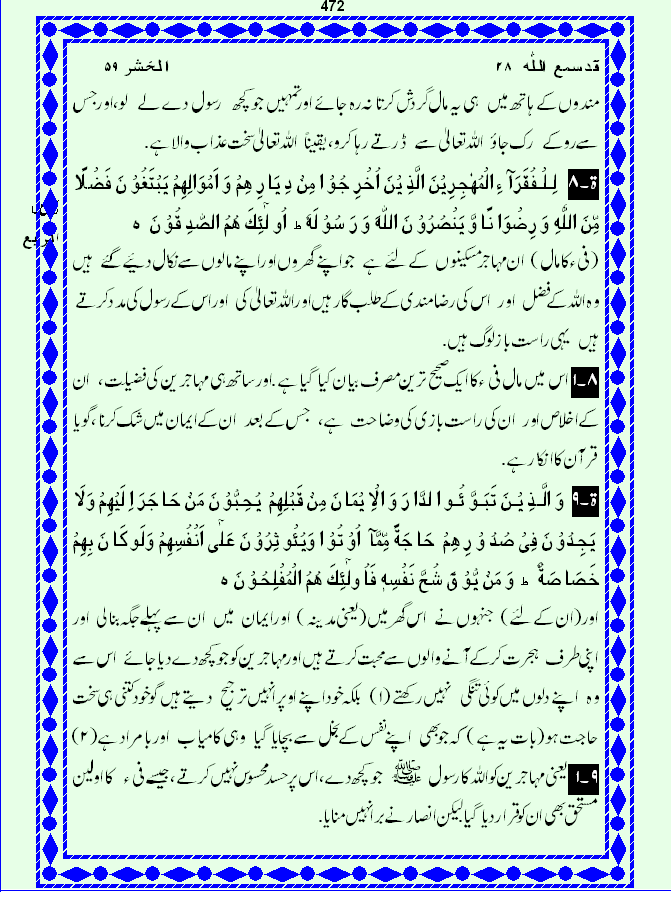 472
قد سمع اللہ ۲۸
الحشر ۵۹
مندوں کے ہاتھ میں ہی یہ مال گردش کرتا نہ رہ جائے اور تمہیں جو کچھ رسول دے لے لو، اور جس
سے روکے رک جاؤ اللہ تعالیٰ سے ڈرتے رہا کرو، یقیناً اللہ تعالیٰ سخت عذاب والا ہے.
ۃ۔۸ لِلْفُقَرَآءِ الْمُهٰجِرِيْنَ الَّذِيْنَ اُخْرِجُوْا مِنْ دِيَارِهِمْ وَاَمْوَالِهِمْ يَبْتَغُوْنَ فَضْلًا
مِّنَ اللّٰهِ وَرِضْوَانًا وَّيَنْصُرُوْنَ اللّٰهَ وَرَسُوْلَهٗ ط اُولٰٓئِكَ هُمُ الصّٰدِقُوْنَ ہ
(فیء کا مال) ان مہاجر مسکینوں کے لئے ہے جو اپنے گھروں اور اپنے مالوں سے نکال دیئے گئے ہیں
وہ اللہ کے فضل اور اس کی رضامندی کے طلب گار ہیں اور اللہ تعالیٰ کی اور اس کے رسول کی مدد کرتے
ہیں یہی راست باز لوگ ہیں.
۸۔۱ اس میں مال فیء کا ایک صحیح ترین مصرف بیان کیا گیا ہے. اور ساتھ ہی مہاجرین کی فضیلت، ان
کے اخلاص اور ان کی راست بازی کی وضاحت ہے، جس کے بعد ان کے ایمان میں شک کرنا، گویا
قرآن کا انکار ہے.
ۃ۔۹ وَالَّذِيْنَ تَبَوَّئُوا الدَّارَ وَالْاِيْمَانَ مِنْ قَبْلِهِمْ يُحِبُّوْنَ مَنْ هَاجَرَ اِلَيْهِمْ وَلَا
يَجِدُوْنَ فِيْ صُدُوْرِهِمْ حَاجَةً مِّمَّآ اُوْتُوْا وَيُئْوثِرُوْنَ عَلٰٓى اَنْفُسِهِمْ وَلَوْ كَانَ بِهِمْ
خَصَاصَةٌ ط وَمَنْ يُّوْقَ شُحَّ نَفْسِهٖ فَاُولٰٓئِكَ هُمُ الْمُفْلِحُوْنَ ہ
اور (ان کے لئے) جنہوں نے اس گھر میں (یعنی مدینہ) اور ایمان میں ان سے پہلے جگہ بنالی اور
اپنی طرف ہجرت کرکے آنے والوں سے محبت کرتے ہیں اور مہاجرین کو جو کچھ دے دیا جائے اس سے
وہ اپنے دلوں میں کوئی تنگی نہیں رکھتے (۱) بلکہ خود اپنے اوپر انہیں ترجیح دیتے ہیں گو خود کتنی ہی سخت
حاجت ہو (بات یہ ہے) کہ جو بھی اپنے نفس کے بخل سے بچایا گیا وہی کامیاب اور بامراد ہے (۲)
۹۔۱ یعنی مہاجرین کو اللہ کا رسول ﷺ جو کچھ دے، اس پر حسد محسوس نہیں کرتے، جیسے فیء کا اولین
مستحق بھی ان کو قرار دیا گیا لیکن انصار نے برا نہیں منایا.